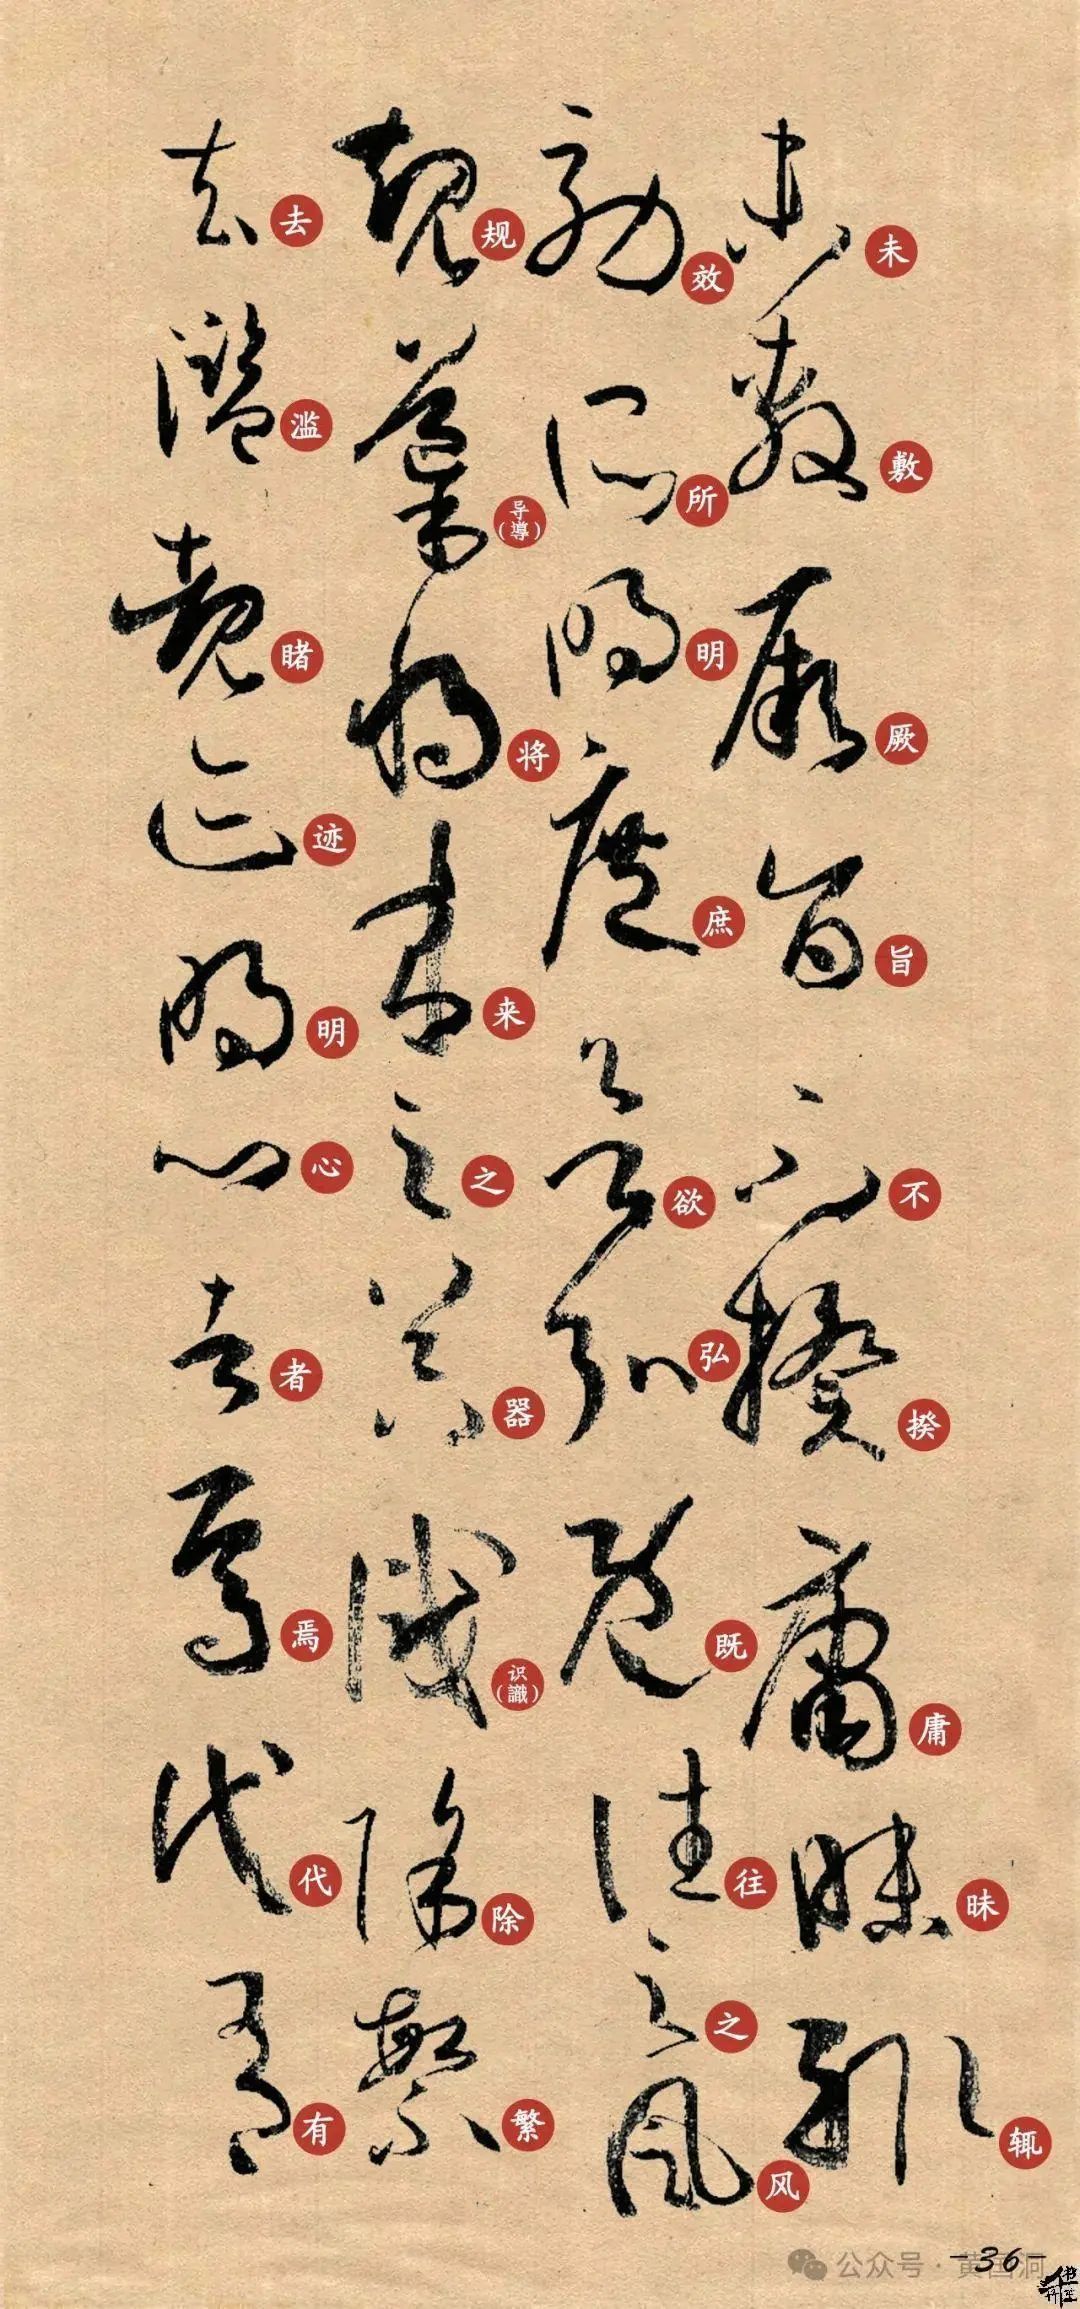 未敷厥旨不揆庸昧辄
效所明庶欲弘既往之风
规导(導)将来之器识(識)除繁
去滥睹迹明心者焉代有
公众号·黄国洞
-36-